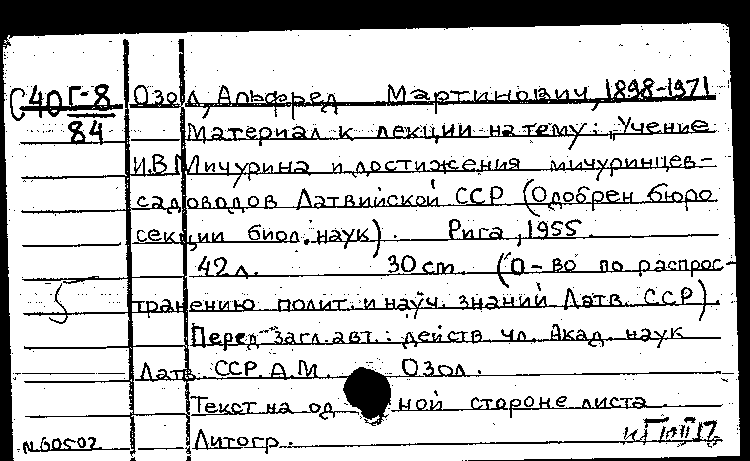 С40 Г-8 Озол, Альфред Мартинович, 1898-1971
84 Материал к лекции на тему: „Учение
И.В Мичурина и достижения мичуринцев-
садоводов Латвийской ССР (Одобрен бюро
секции биол. наук). Рига, 1955.
42 л. 30 cm. (О-во по распрос-
5 транению полит. и науч. знаний Латв. ССР).
Перед загл. авт.: действ. чл. Акад. наук
Латв. ССР А.М. Озол.
Текст на одной стороне листа.
N.60502 Литогр.